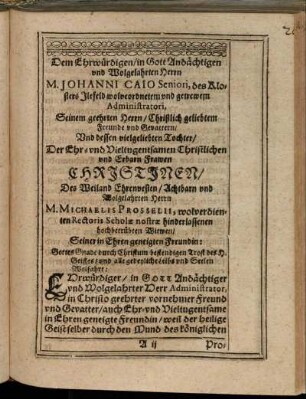 Dem Ehrwürdigen/in Gott Andächtigen
vnd Wolgelahrten Herrn
M. JOHANNI CAIO Seniori, des Klo-
sters Ilefeld wolverordnetem vnd getrewem
Administratori,
Seinem geehrten Herrn/ Christlich geliebtem
Freunde vnd Gevattern/
Vnd dessen vielgeliebten Tochter/
Der Ehr- vnd Vieltugentsamen Christlichen
vnd Erbarn Frawen
CHRISTINEN/
Des Weiland Ehrenvesten/ Achtbarn vnd
Wolgelahrten Herrn
M. MICHAELIS PROSSELII, wolverdien-
ten Rectoris Scholæ nostræ hinderlassenen
hochbetrübten Witwen/
Seiner in Ehren geneigten Freundin:
Gottes Gnade durch Christum bestendigen Trost des H.
Geistes/ vnd alle gedeyliche Leibs vnd Seelen
Wolfahrt:
EHrwürdiger/ in GOTT Andächtiger
vnd Wolgelahrter Herr Administrator,
in Christo geehrter vornehmer Freund
vnd Gevatter/ auch Ehr- vnd Vieltugentsame
in Ehren geneigte Freundin/ weil der heilige
Geist selber durch den Mund des königlichen
A ij Pro-